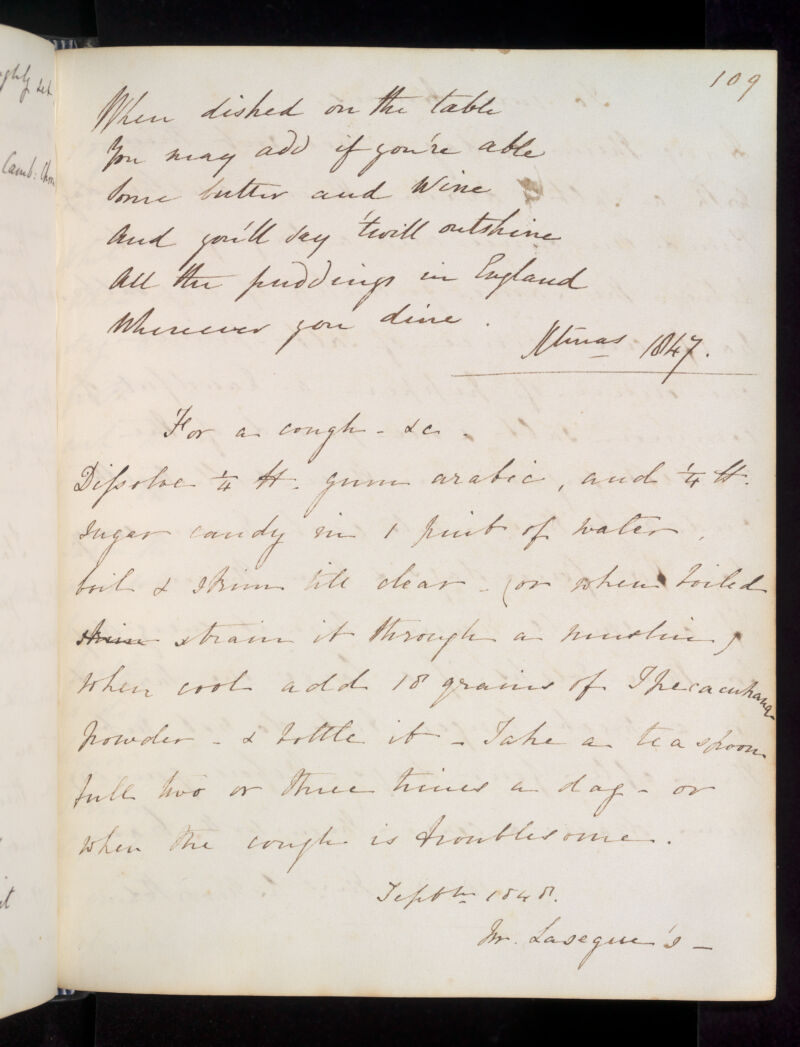 109
When dished on the table
You may add if you're able
Some butter and Wine
And you'll say 'twill outshine
All the puddings in England
Wherever you dine.
Xtmas 1847.
For a cough - &c -
Dissolve ¼ lb. gum arabic, and ¼ lb.
sugar candy in 1 pint of water,
boil & skim till clear - (or when boiled
skim strain it through a muslin)
When cool add 18 grains of Ipecacuhana
powder - & bottle it - Take a tea spoon
full two or three times a day - or
when the cough is troublesome.
Septbr 1848.
Mr. Lasegue's -
Camb: